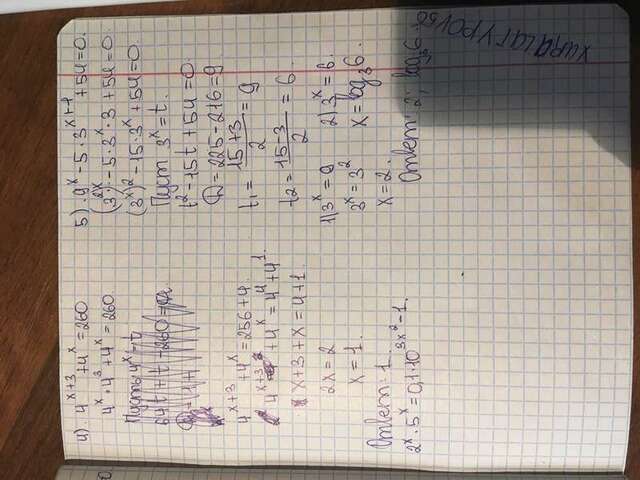 4) 4^{x+3} + 4^x = 260
4^x · 4^3 + 4^x = 260.
Пусть 4^x = t
64t + t - 260 = 0
4^{x+3} + 4^x = 256 + 4.
4^{x+3} + 4^x = 4^4 + 4^1
x + 3 + x = 4 + 1.
2x = 2
x = 1.
Ответ: 1.
2^x · 5^x = 0,1 · 10^{3x^2 - 1}.
5) 9^x - 5 · 3^{x+1} + 54 = 0.
(3^2)^x - 5 · 3^x · 3 + 54 = 0
(3^x)^2 - 15 · 3^x + 54 = 0
Пуст 3^x = t.
t^2 - 15t + 54 = 0
D = 225 - 216 = 9
t_1 = \frac{15+3}{2} = 9
t_2 = \frac{15-3}{2} = 6.
1) 3^x = 9 2) 3^x = 6.
3^x = 3^2 x = log_3 6.
x = 2.
Ответ: 2; log_3 6.
XURALATYPOV50